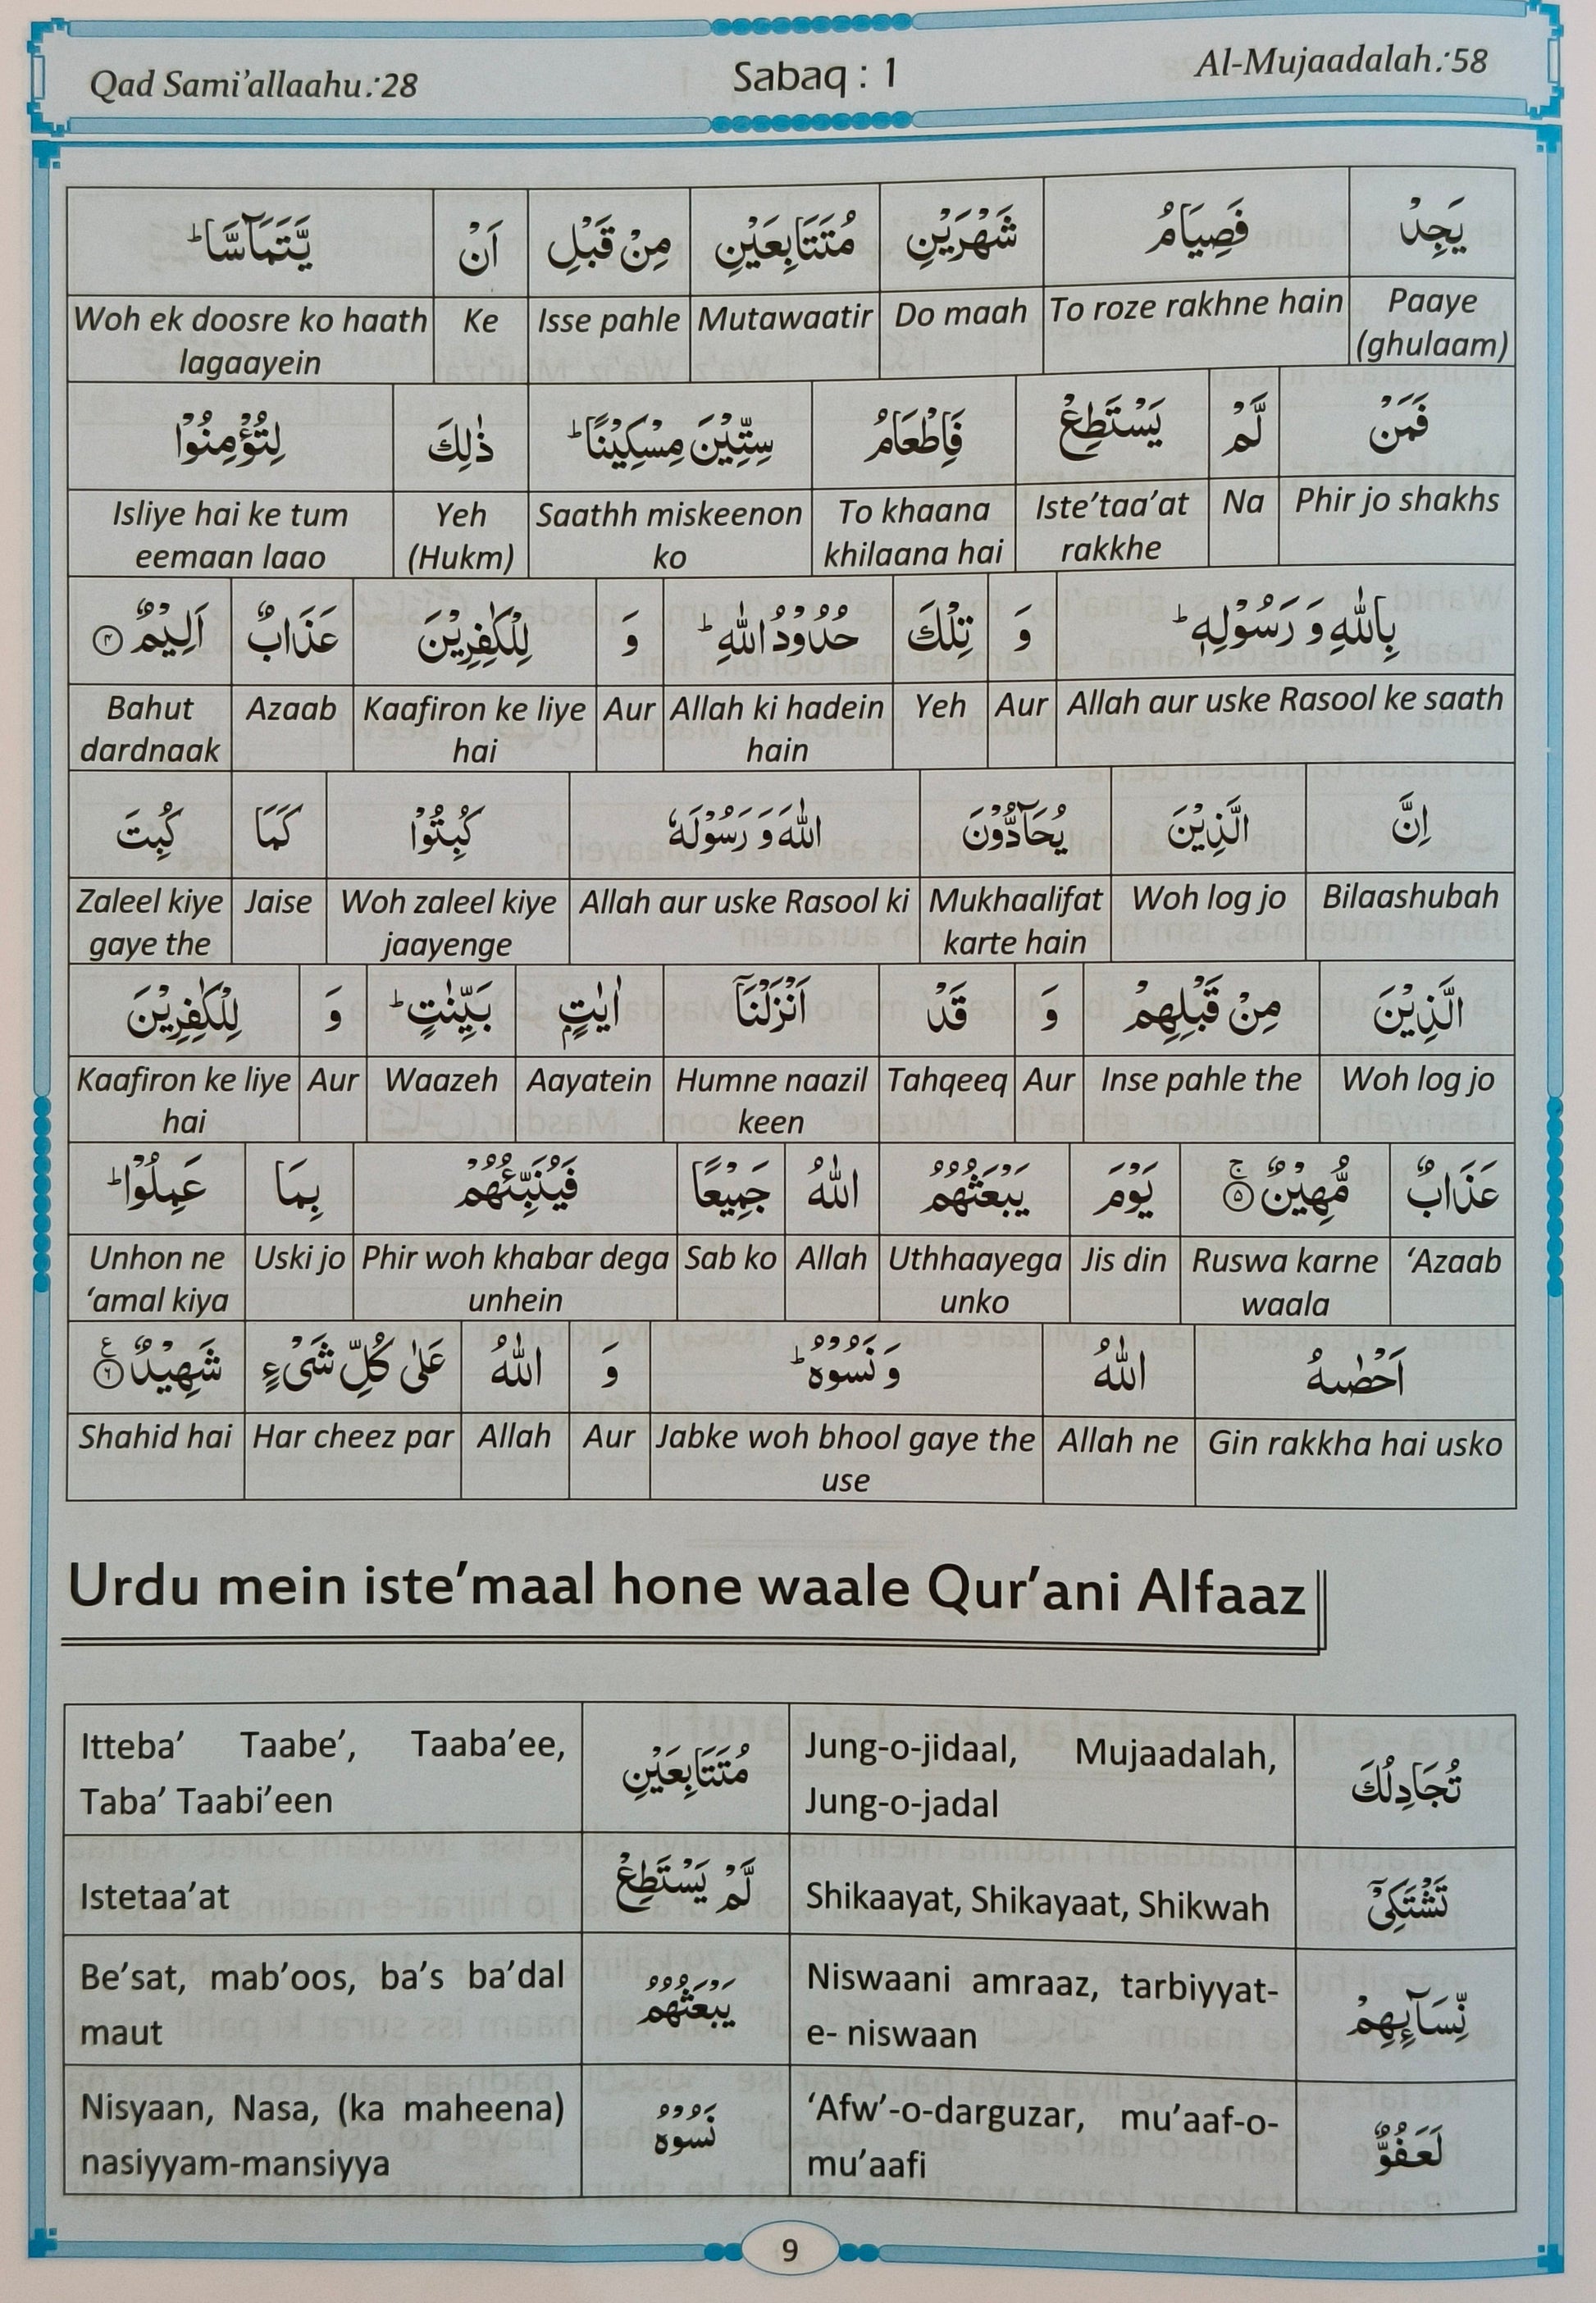 Qad Sami'allaahu:28 Sabaq : 1 Al-Mujaadalah:58
يَجِدْ فَصِيَامُ شَهْرَيْنِ مُتَتَابِعَيْنِ مِنْ قَبْلِ اَنْ يَّتَمَآسَّا ؕ
Paaye To roze rakhne hain Do maah Mutawaatir Isse pahle Ke Woh ek doosre ko haath
(ghulaam) lagaayein
فَمَنْ لَّمْ يَسْتَطِعْ فَاِطْعَامُ سِتِّيْنَ مِسْكِيْنًا ؕ ذٰلِكَ لِتُؤْمِنُوْا
Phir jo shakhs Na Iste'taa'at To khaana Saathh miskeenon Yeh Isliye hai ke tum
rakkhe khilaana hai ko (Hukm) eemaan laao
بِاللّٰهِ وَ رَسُوْلِهٖ ؕ وَ تِلْكَ حُدُوْدُ اللّٰهِ ؕ وَ لِلْكٰفِرِيْنَ عَذَابٌ اَلِيْمٌ ۴
Allah aur uske Rasool ke saath Aur Yeh Allah ki hadein Aur Kaafiron ke liye Azaab Bahut
hain hai dardnaak
اِنَّ الَّذِيْنَ يُحَآدُّوْنَ اللّٰهَ وَ رَسُوْلَهٗ كُبِتُوْا كَمَا كُبِتَ
Bilaashubah Woh log jo Mukhaalifat Allah aur uske Rasool ki Woh zaleel kiye Jaise Zaleel kiye
karte hain jaayenge gaye the
الَّذِيْنَ مِنْ قَبْلِهِمْ وَ قَدْ اَنْزَلْنَاۤ اٰيٰتٍۭ بَيِّنٰتٍ ؕ وَ لِلْكٰفِرِيْنَ
Woh log jo Inse pahle the Aur Tahqeeq Humne naazil Aayatein Waazeh Aur Kaafiron ke liye
keen hai
عَذَابٌ مُّهِيْنٌ ۚ ۵ يَوْمَ يَبْعَثُهُمُ اللّٰهُ جَمِيْعًا فَيُنَبِّئُهُمْ بِمَا عَمِلُوْا ؕ
'Azaab Ruswa karne Jis din Uthhaayega Allah Sab ko Phir woh khabar dega Uski jo Unhon ne
waala unko unhein 'amal kiya
اَحْصٰىهُ اللّٰهُ وَ نَسُوْهُ ؕ وَ اللّٰهُ عَلٰى كُلِّ شَىْءٍ شَهِيْدٌ ۶ ع
Gin rakkha hai usko Allah ne Jabke woh bhool gaye the Aur Allah Har cheez par Shahid hai
use
Urdu mein iste'maal hone waale Qur'ani Alfaaz
تُجَادِلُكَ Jung-o-jidaal, Mujaadalah, مُتَتَابِعَيْنِ Itteba' Taabe', Taaba'ee,
Jung-o-jadal Taba' Taabi'een
تَشْتَكِىْۤ Shikaayat, Shikayaat, Shikwah لَّمْ يَسْتَطِعْ Istetaa'at
نِّسَآئِهِمْ Niswaani amraaz, tarbiyyat- يَبْعَثُهُمُ Be'sat, mab'oos, ba's ba'dal
e- niswaan maut
لَعَفُوٌّ 'Afw'-o-darguzar, mu'aaf-o- نَسُوْهُ Nisyaan, Nasa, (ka maheena)
mu'aafi nasiyyam-mansiyya
9